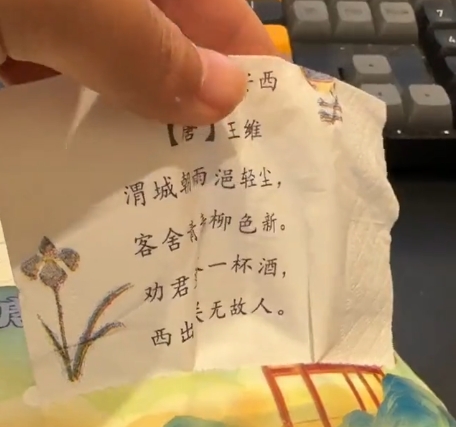 西
【唐】王维
渭城朝雨浥轻尘，
客舍青柳色新。
劝君一杯酒，
西出无故人。
7